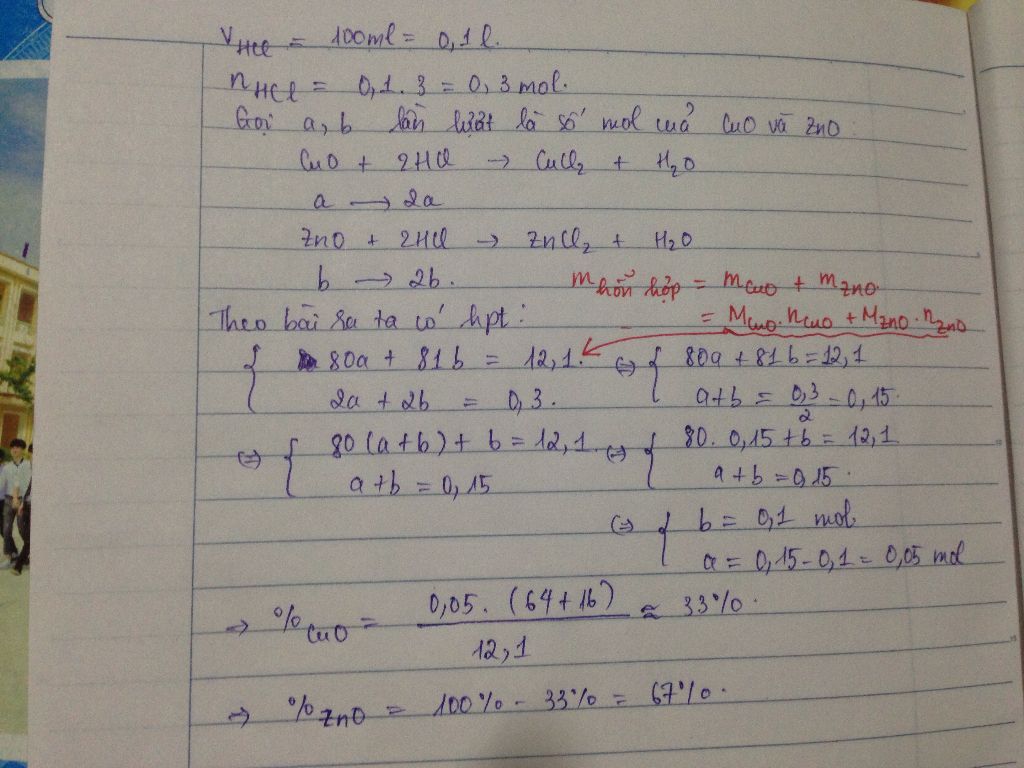 V_HCl = 100ml = 0,1 l.
n_HCl = 0,1 . 3 = 0,3 mol.
Gọi a, b lần lượt là số mol của CuO và ZnO
CuO + 2HCl → CuCl₂ + H₂O
a → 2a
ZnO + 2HCl → ZnCl₂ + H₂O
b → 2b.
m hỗn hợp = m_CuO + m_ZnO.
= M_CuO . n_CuO + M_ZnO . n_ZnO
Theo bài ra ta có hpt:
{ 80a + 81b = 12,1. ⇔ { 80a + 81b = 12,1
2a + 2b = 0,3. a+b = 0,3/2 = 0,15.
⇔ { 80(a+b) + b = 12,1. ⇔ { 80. 0,15 + b = 12,1
a+b = 0,15 a+b = 0,15.
⇔ { b = 0,1 mol
a = 0,15 - 0,1 = 0,05 mol
⇒ %CuO = 0,05. (64+16) / 12,1 ≈ 33%.
⇒ %ZnO = 100% - 33% = 67%.